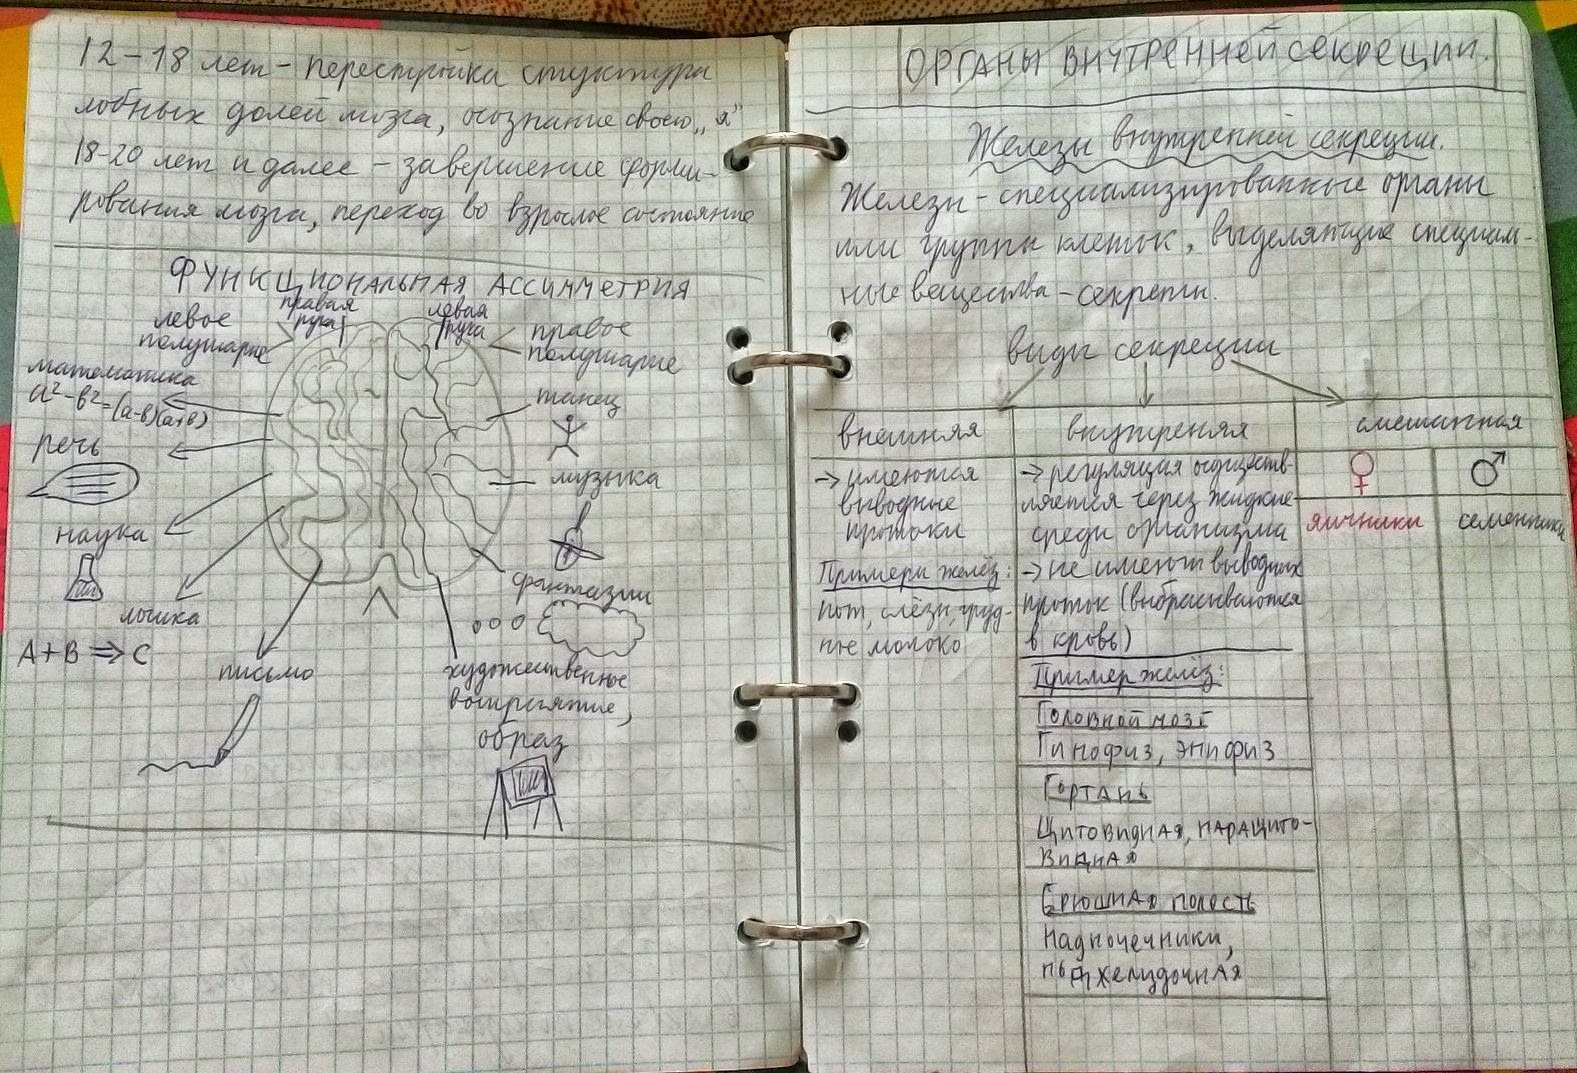 12-18 лет - перестройка структуры
лобных долей мозга, осознание своего „я"
18-20 лет и далее - завершение форми-
рования мозга, переход во взрослое состояние
ФУНКЦИОНАЛЬНАЯ АССИММЕТРИЯ
левое
полушарие
правая
рука
левая
рука
правое
полушарие
математика
a²-b²=(a-b)(a+b)
речь
наука
логика
A+B⇒C
письмо
танец
музыка
фантазии
художественное
восприятие,
образ
ОРГАНЫ ВНУТРЕННЕЙ СЕКРЕЦИИ.
Железы внутренней секреции.
Железы - специализированные органы
или группы клеток, выделяющие специаль-
ные вещества - секреты.
виды секреции
внешняя
→ имеются
выводные
протоки
Примеры желёз:
пот, слёзы, груд-
ное молоко
внутреняя
→ регуляция осуществ-
ляется через жидкие
среды организма
→ не имеют выводных
проток (выбрасываются
в кровь)
Пример желёз:
Головной мозг
Гипофиз, эпифиз
Гортань
Щитовидная, паращито-
видная
Брюшная полость
Надпочечники,
поджелудочная
смешанная
♀
♂
яичники
семенники